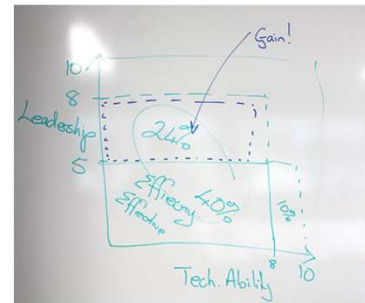 Gain!
10
8
Leadership
24%
5
Efficiency
Effective
40%
10%
8
10
Tech. Ability